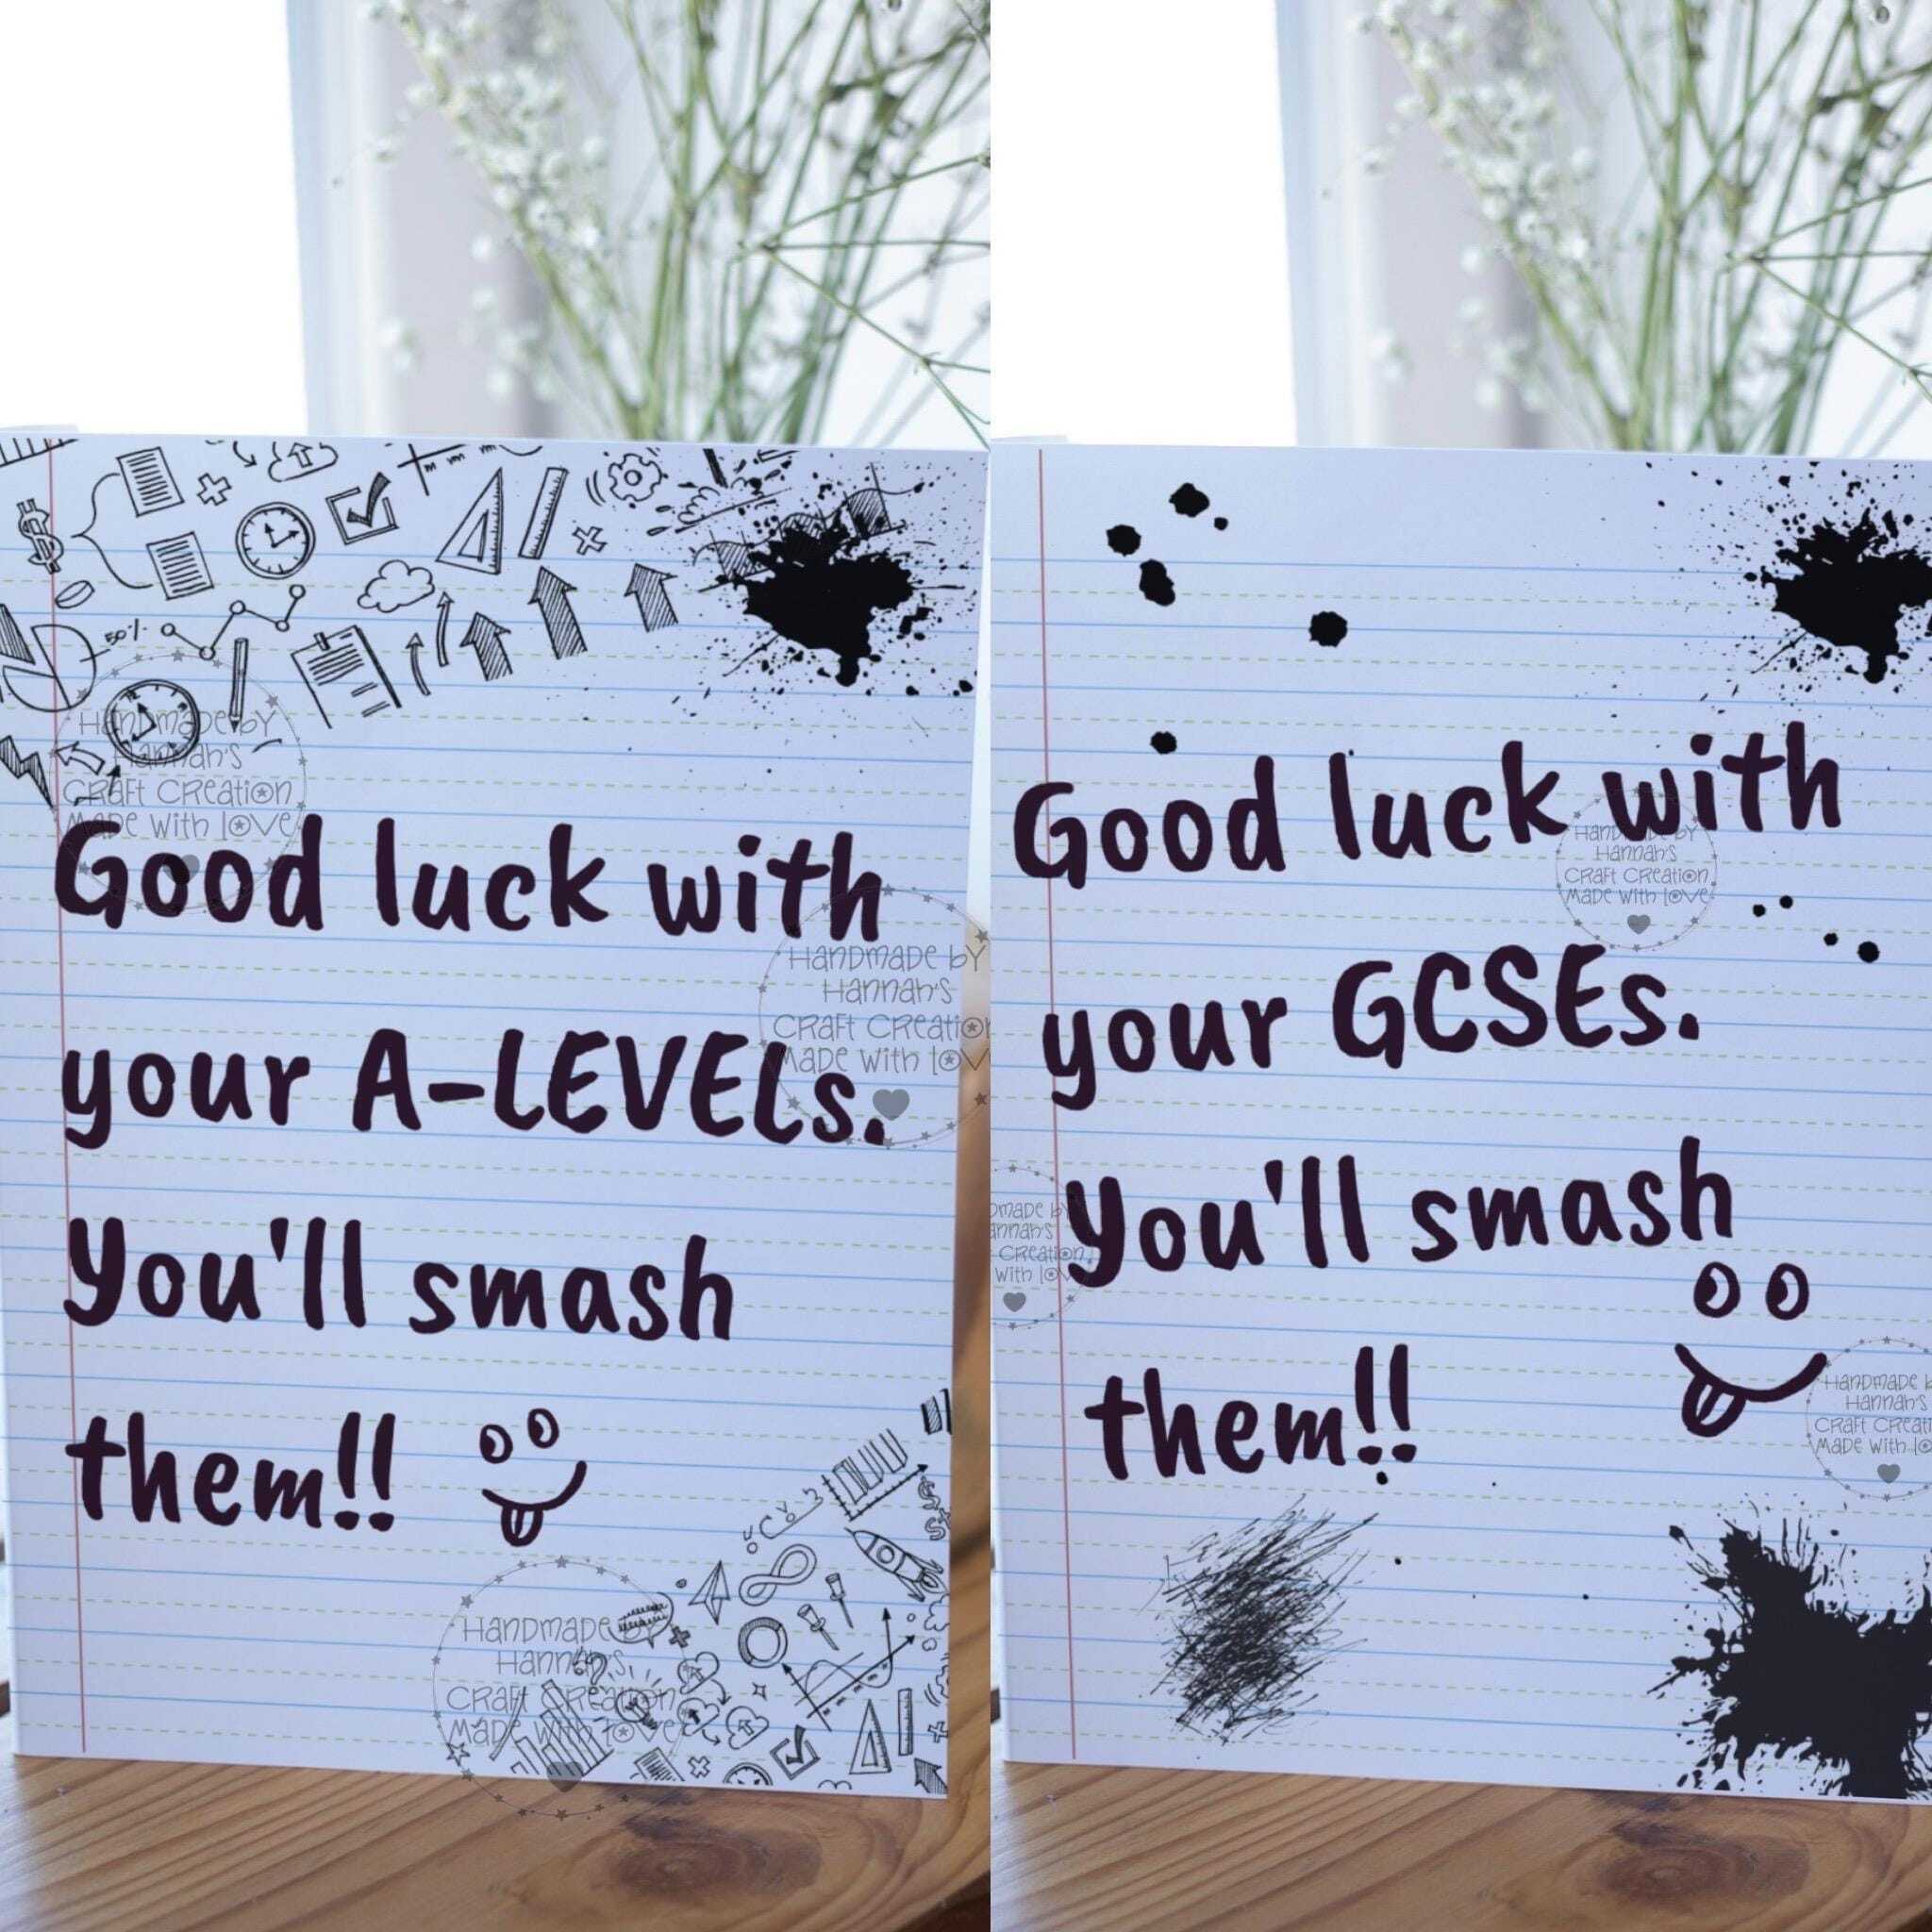 50%
Handmade by
Hannah's
Craft Creation
Made with love
Good luck with
your A-LEVELs.
You'll smash
them!!
Handmade by
Hannah's
Craft Creation
Made with love
Handmade by
Hannah's
Craft Creation
Made with love
Good luck with
your GCSEs.
You'll smash
them!!
Handmade by
Hannah's
Craft Creation
Made with love
Craft Creation
with love
Handmade
Hannah's
Craft
Made with